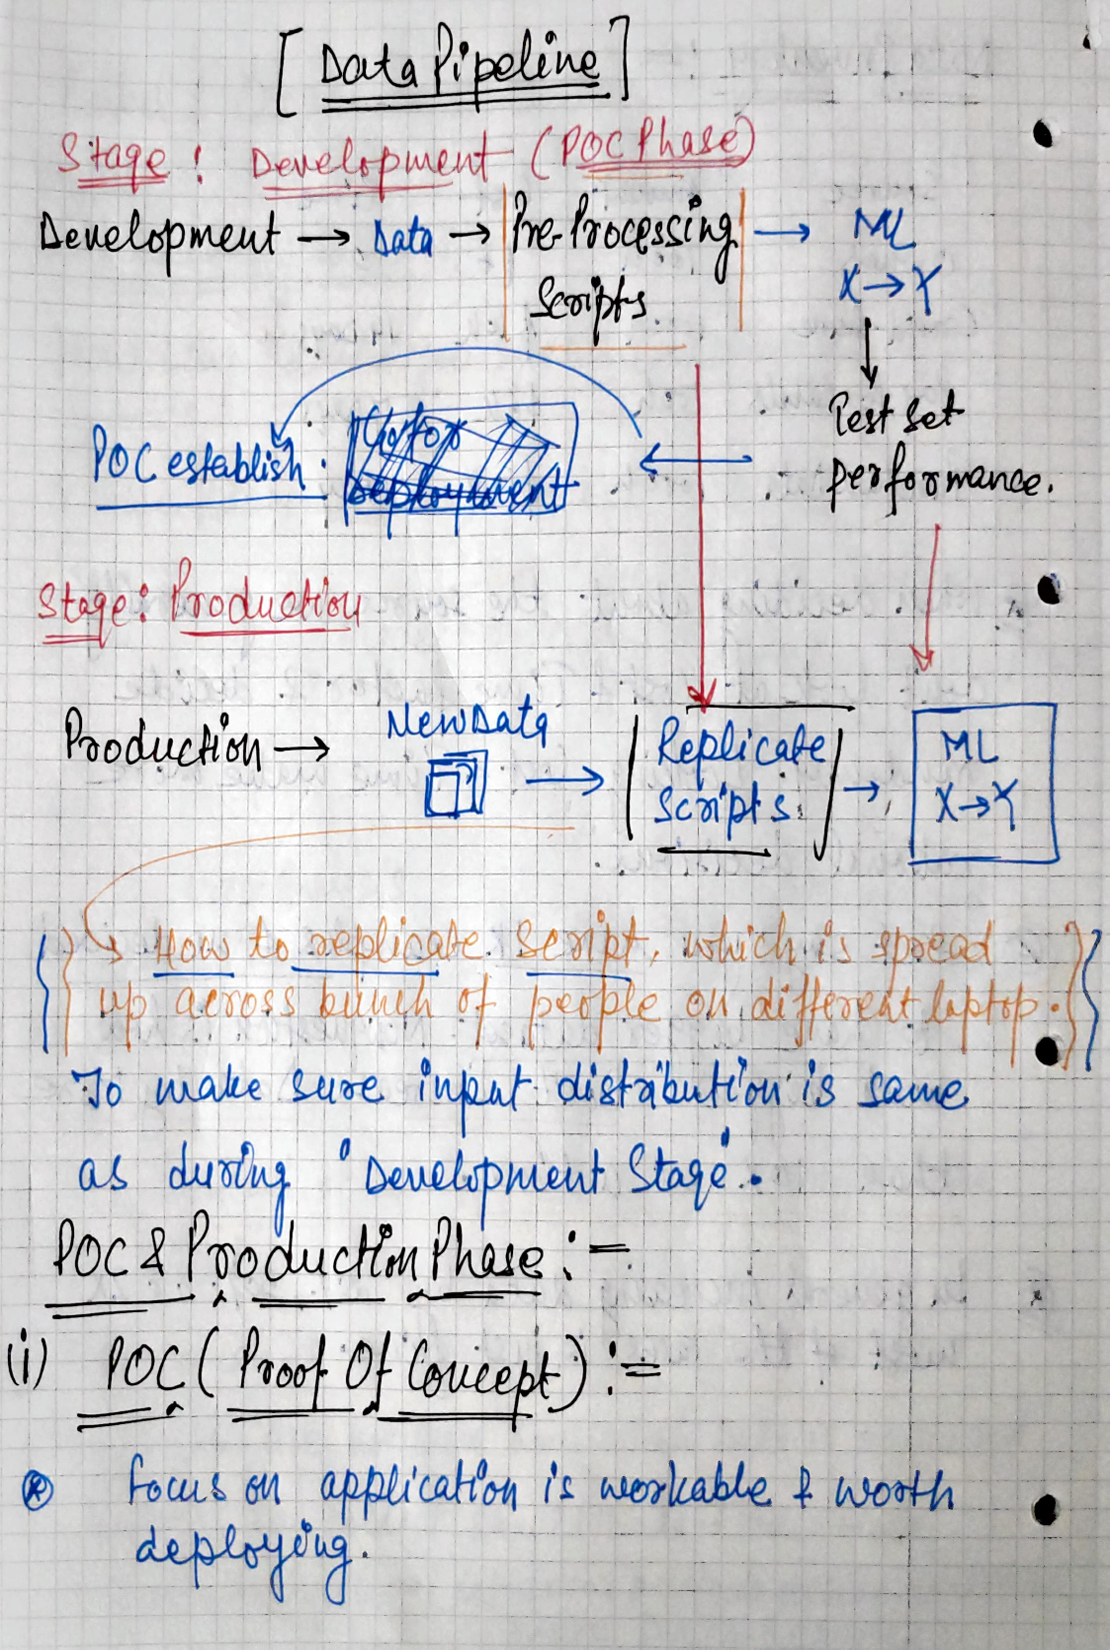 [ Data Pipeline ]
Stage : Development (POC Phase)
Development → Data → Pre-Processing Scripts → ML X→Y
↓
Test Set performance.
←
POC establish.
Go for Deployment
Stage: Production
Production → New Data → Replicate Scripts → ML X→Y
{ → How to replicate script, which is spread
up across bunch of people on different laptop. }
To make sure input distribution is same
as during 'Development Stage'.
POC & Production Phase :=
(i) POC ( Proof Of Concept ) :=
⊛ Focus on application is workable & worth
deploying.